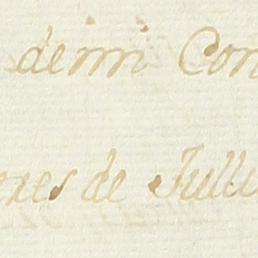 de mi Con
nes de Julli